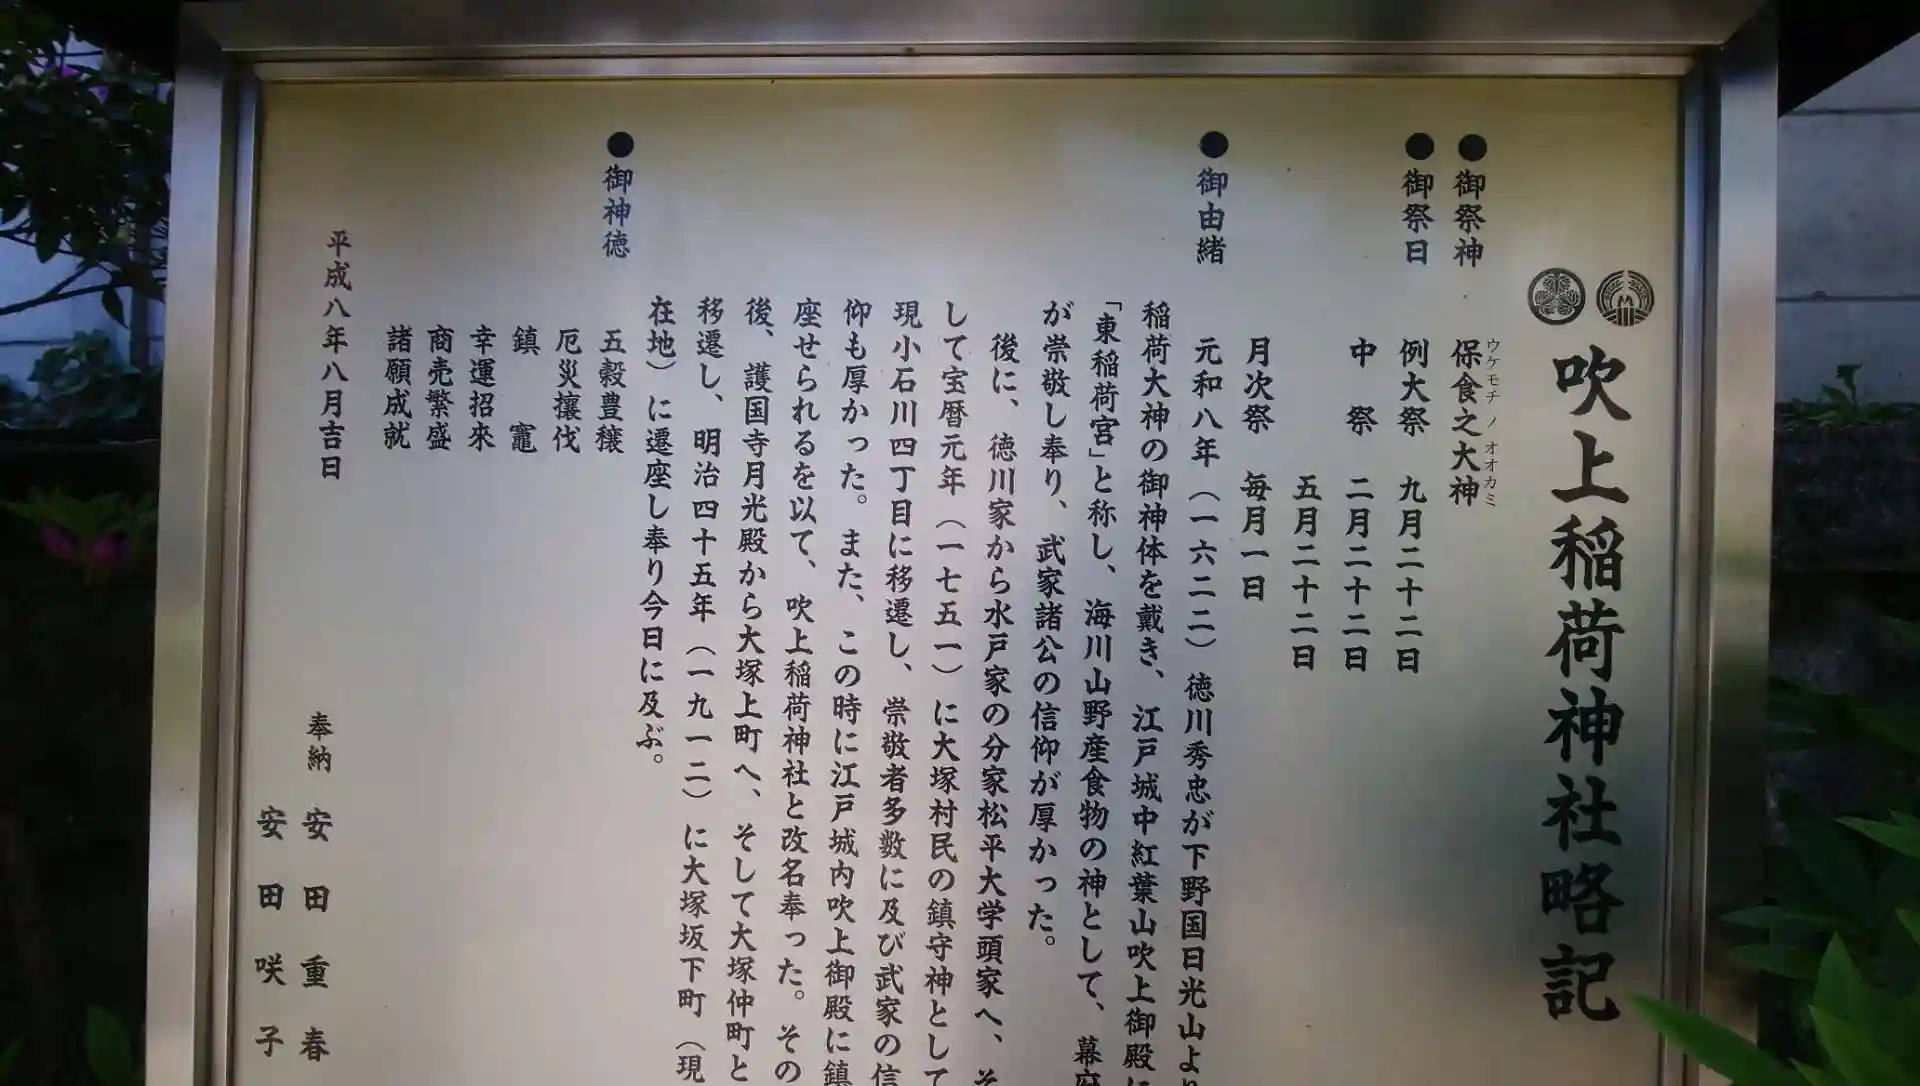 吹上稲荷神社略記
●御祭神 保食之大神
ウケモチ ノ オオカミ
●御祭日 例大祭 九月二十二日
中 祭 二月二十二日
五月二十二日
月次祭 毎月一日
●御由緒 元和八年（一六二二）徳川秀忠が下野国日光山より
稲荷大神の御神体を戴き、江戸城中紅葉山吹上御殿に
「東稲荷宮」と称し、海川山野産食物の神として、幕府
が崇敬し奉り、武家諸公の信仰が厚かった。
後に、徳川家から水戸家の分家松平大学頭家へ、そ
して宝暦元年（一七五一）に大塚村民の鎮守神として
現小石川四丁目に移遷し、崇敬者多数に及び武家の信
仰も厚かった。また、この時に江戸城内吹上御殿に鎮
座せられるを以て、吹上稲荷神社と改名奉った。その
後、護国寺月光殿から大塚上町へ、そして大塚仲町と
移遷し、明治四十五年（一九一二）に大塚坂下町（現
在地）に遷座し奉り今日に及ぶ。
●御神徳 五穀豊穣
厄災攘伐
鎮 竈
幸運招来
商売繁盛
諸願成就
平成八年八月吉日
奉納 安田重春
安田咲子